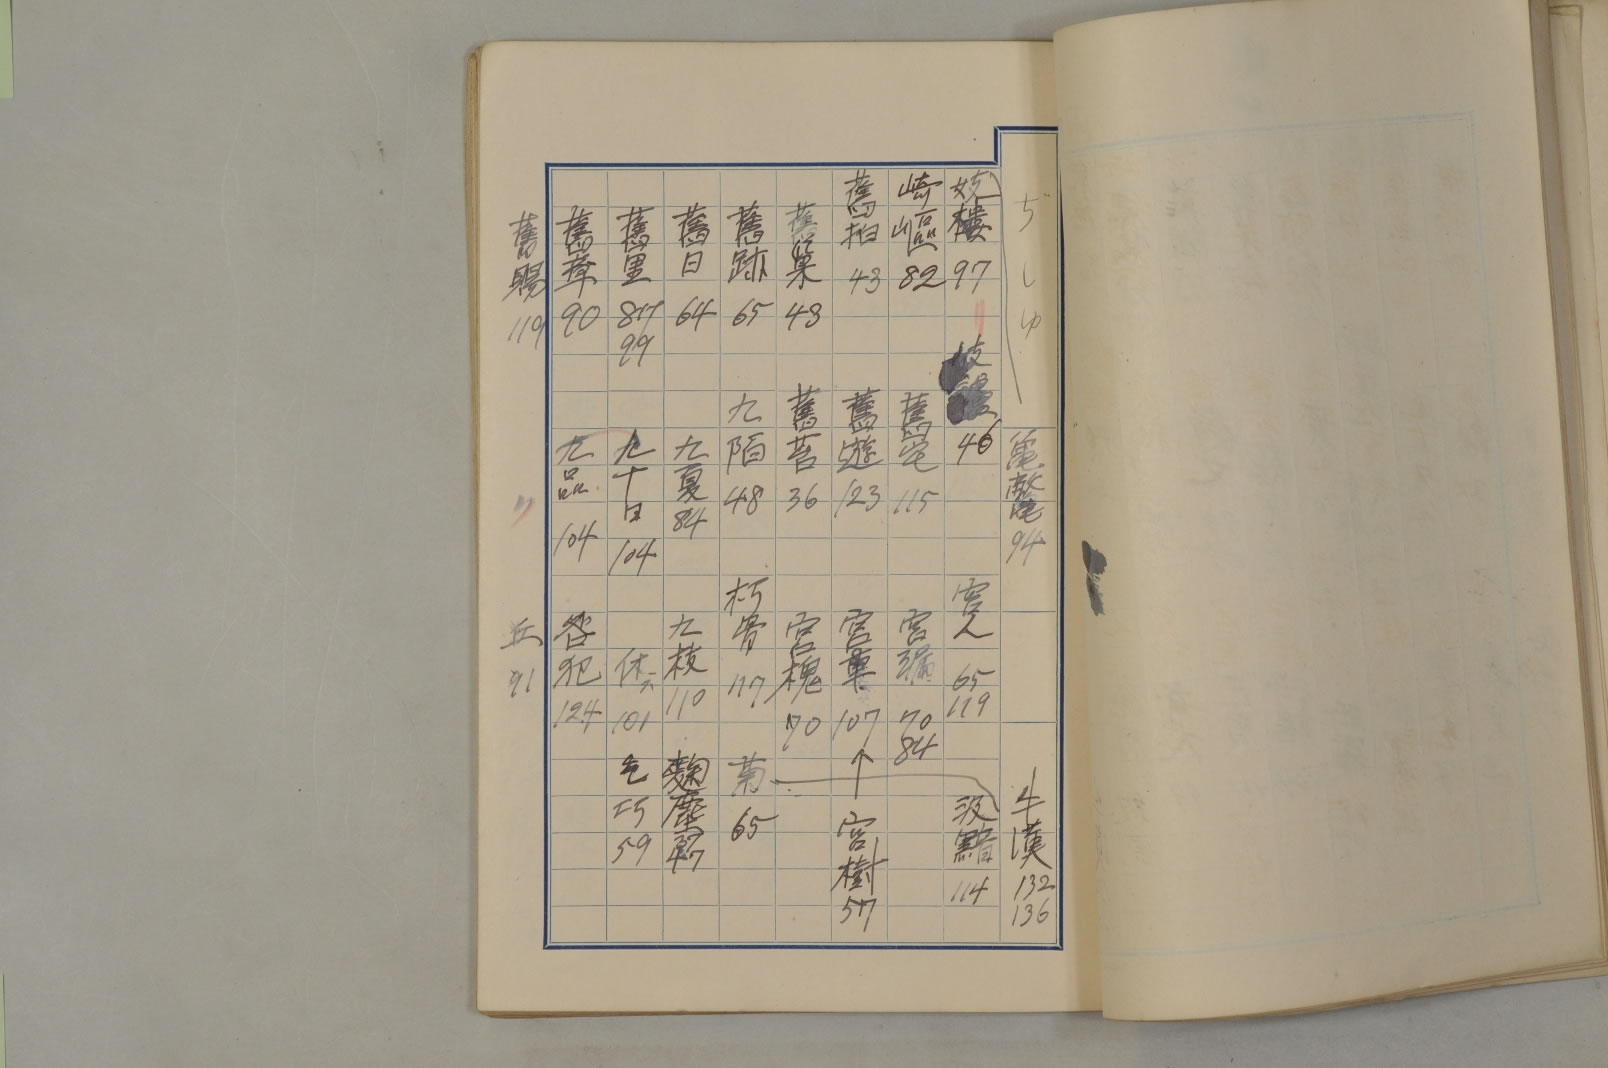 ぢしゅ
竈鼇 94
牛漢 132 136
妓樓 97
46
宮人 65 119
汲黯 114
崎嶇 82
舊宅 115
宮漏 70 84
舊拍 43
舊遊 123
宮車 107
宮樹 57
舊巣 43
舊苔 36
宮槐 70
舊跡 65
九陌 48
朽骨 117
菊 65
舊日 64
九夏 84
九枝 110
麴塵
舊里 87 99
九十日 104
休 101
乞巧 59
舊章 90
九品 104
咎犯 124
舊賜 119
丘 91